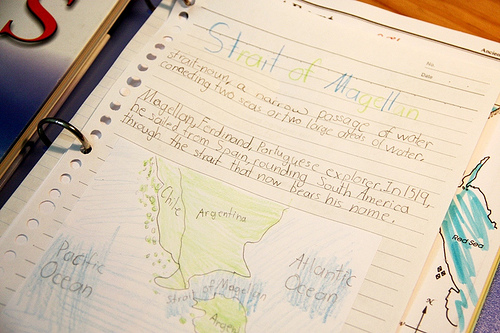 S
Ancien
No.
Date
Strait of Magellan
strait-noun, a narrow passage of water
connecting two seas or two large areas of water.
Magellan, Ferdinand, Portuguese explorer. In 1519,
he sailed from Spain, rounding South America
through the strait that now bears his name.
Chile
Argentina
Pacific
Ocean
Atlantic
Ocean
Strait of Magellan
Arge
Red Sea
N